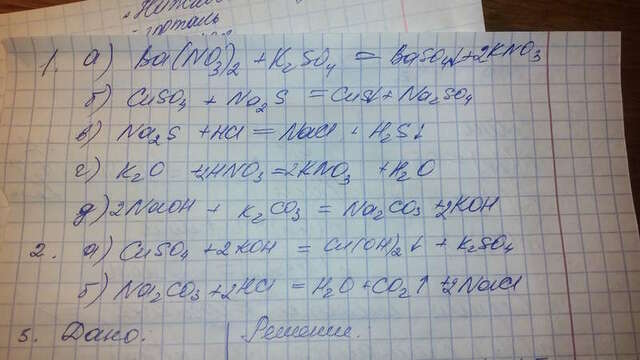 1. а) Ba(NO3)2 + K2SO4 = BaSO4↓+2KNO3
б) CuSO4 + Na2S = CuS↓ + Na2SO4
в) Na2S + HCl = NaCl + H2S↓
г) K2O +2HNO3 =2KNO3 + H2O
д) 2NaOH + K2CO3 = Na2CO3 +2KOH
2. а) CuSO4 +2KOH = Cu(OH)2↓ + K2SO4
б) Na2CO3 +2HCl = H2O +CO2↑ +2NaCl
3. Дано: Решение: